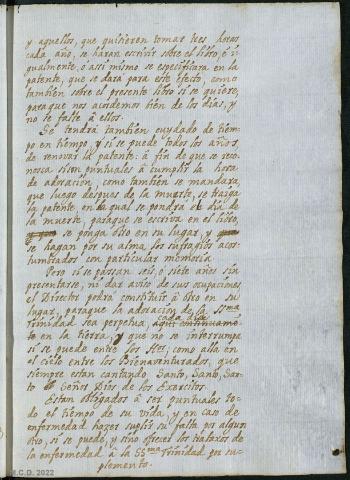 y aquellos, que quisieren tomar tres horas
cada año, se haran escrivir sobre el libro, é i-
gualmente, ó assi mismo se especificara en la
patente, que se dará para este efecto, como
tambien sobre el presente libro si se quiere,
paraque nos acordemos bien de los dias, y
no se falte á ellos.
Se tendrá tambien cuydado de tiem-
po en tiempo, y si se puede todos los años,
de renovar la patente: á fin de que se reco-
nosca si son puntuales á cumplir la hora
de adoracion, como tambien se mandara,
que luego despues de la muerte, se traiga
la patente en la qual se pondrá el dia de
la muerte, paraque se escriva en el libro,
se ponga otro en su lugar, y
se hagan por su alma los sufragios acos-
tumbrados con particular memoria.
Pero si se passan seis, ó siete años sin
presentarse, ni dar aviso de sus ocupaciones
el Director podrá constituir á otro en su
lugar, paraque la adoracion de la SSma
Trinidad sea perpetua, cada dia
te en la tierra, y que no se interrumpa
si se puede entre los como alla en
el cielo entre los Bienaventurados, que
siempre estan cantando Santo, Santo, San-
to Señor Dios de los Exercitos.
Estan obligados á ser puntuales to-
do el tiempo de su vida, y en caso de
enfermedad hazer suplir su falta por algun
otro, si se puede, y sino ofrecer los trabaxos de
la enfermedad á la SSma Trinidad por su-
plemento.
C.D. 2022